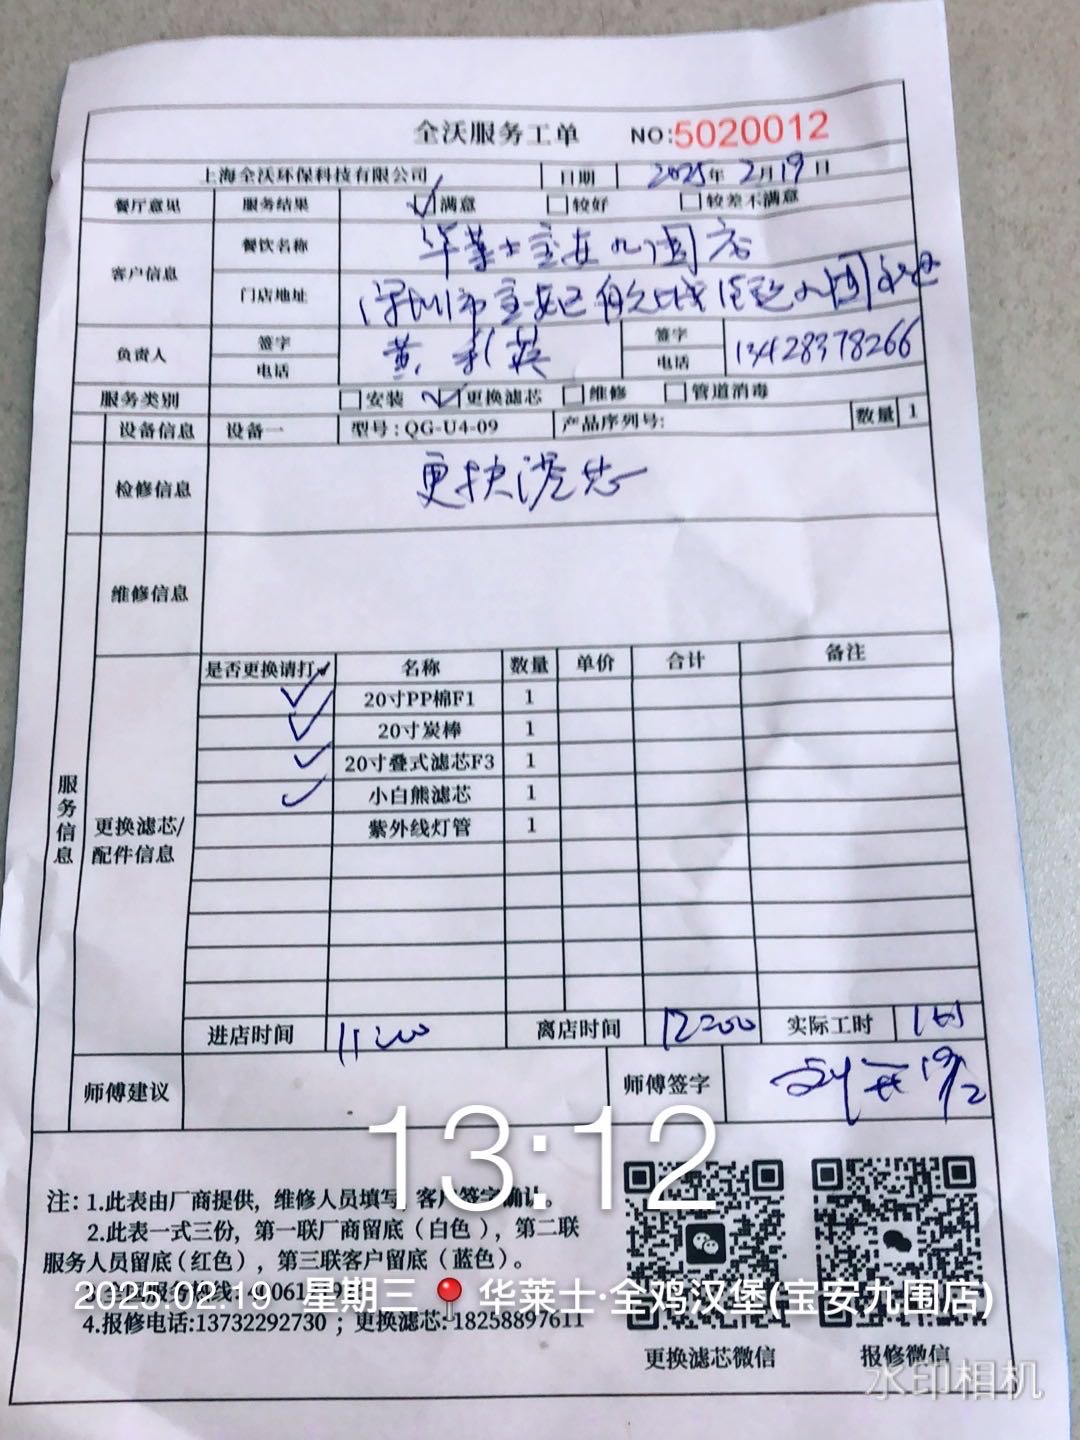 全沃服务工单 NO:5020012
上海全沃环保科技有限公司 日期 2025年 2月19日
餐厅意见 服务结果 满意 较好 较差不满意
客户信息 餐饮名称 华莱士宝安九围店
门店地址 深圳市宝安区航城街道九围
负责人 签字 黄 签字
电话 电话 13428378266
服务类别 安装 更换滤芯 维修 管道消毒
设备信息 设备一 型号:QG-U4-09 产品序列号: 数量 1
检修信息 更换滤芯
维修信息
服务信息
更换滤芯/
配件信息
是否更换请打✓ 名称 数量 单价 合计 备注
✓ 20寸PP棉F1 1
✓ 20寸炭棒 1
✓ 20寸叠式滤芯F3 1
✓ 小白熊滤芯 1
紫外线灯管 1
进店时间 11:00 离店时间 12:00 实际工时 1时
师傅建议 师傅签字 19/2
13:12
注: 1.此表由厂商提供, 维修人员填写, 客户签字确认。
2.此表一式三份, 第一联厂商留底 (白色), 第二联
服务人员留底 (红色), 第三联客户留底 (蓝色)。
2025.02.19 星期三 华莱士·全鸡汉堡(宝安九围店)
4.报修电话:13732292730 ; 更换滤芯:18258897611
更换滤芯微信 报修微信
水印相机